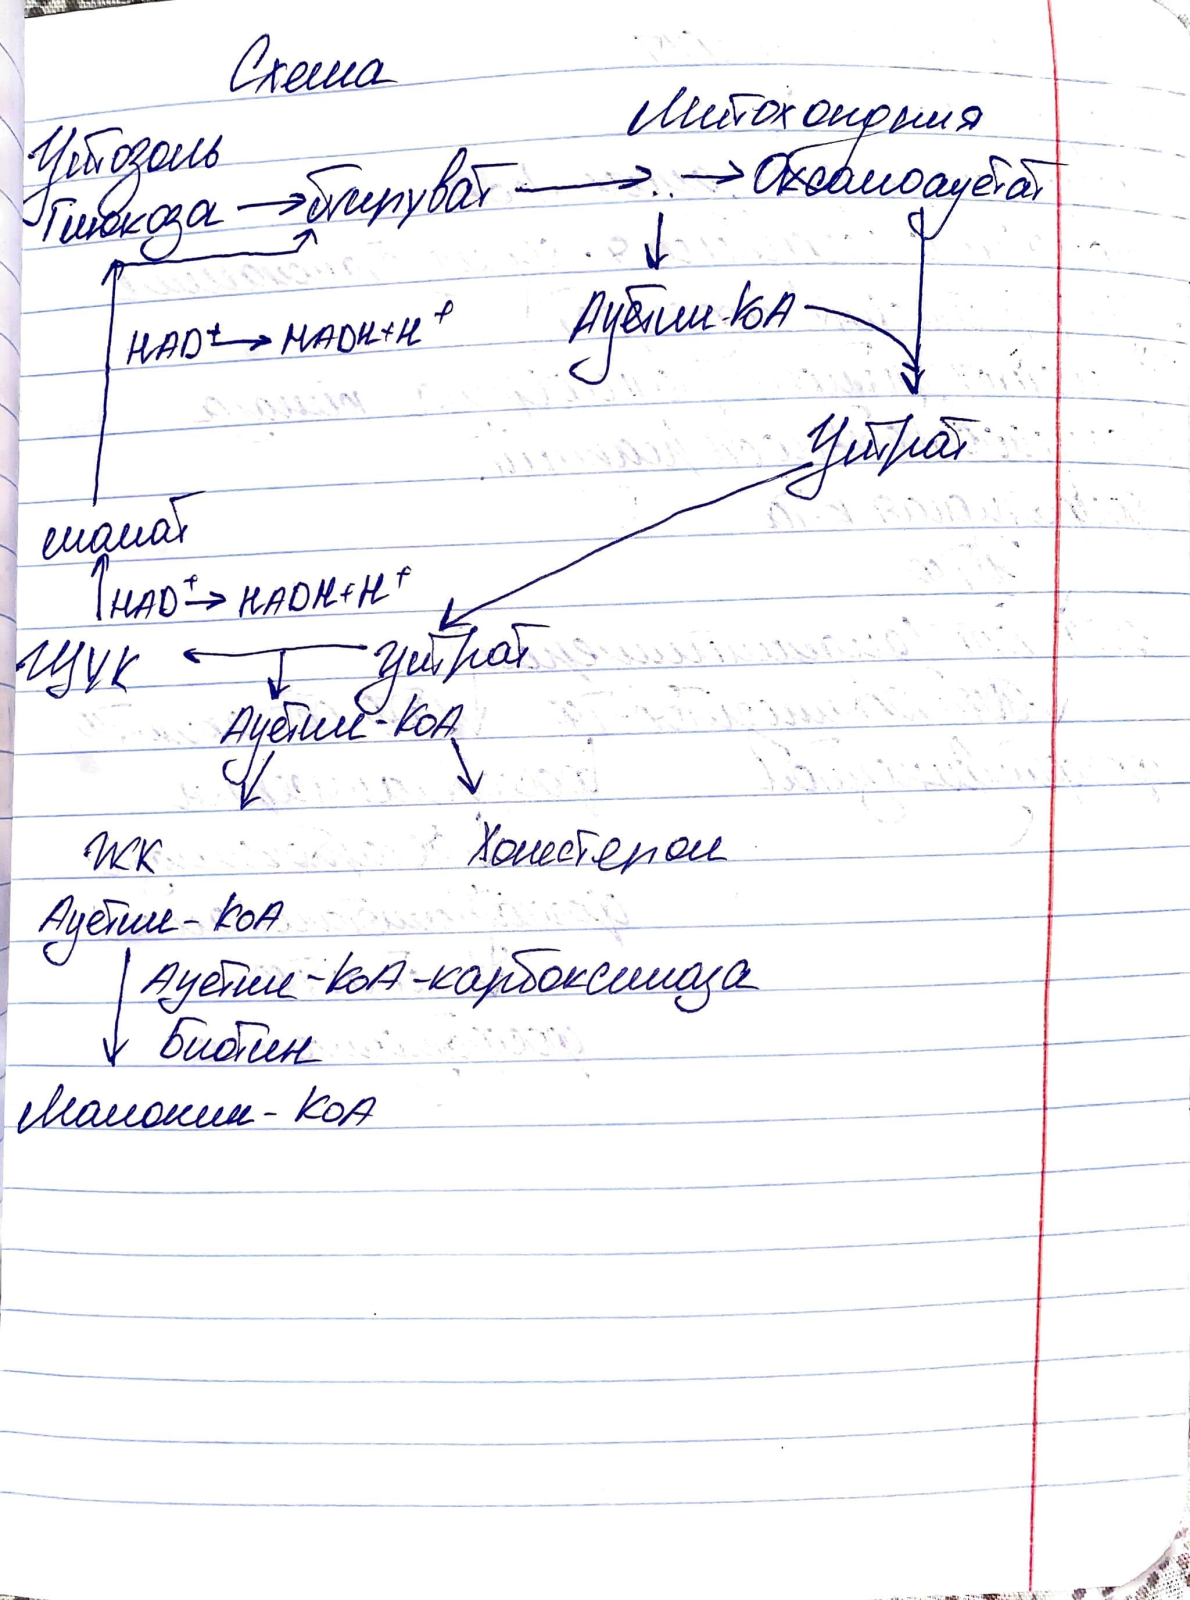 Схема
Митохондрия
Цитозоль
Глюкоза → Пируват → .. → Оксалоацетат
Ацетил-КоА
НАD⁺ → НАDН+Н⁺
Цитрат
малат
НАD⁺ → НАDН+Н⁺
ЩУК ← Цитрат
Ацетил-КоА
ЖК Холестерол
Ацетил-КоА
Ацетил-КоА-карбоксилаза
Биотин
Малонил-КоА